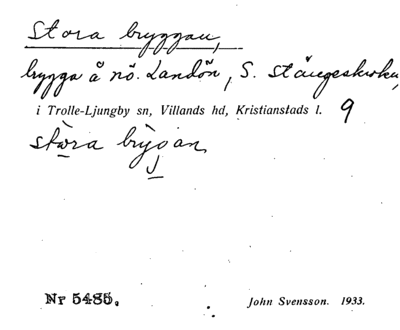 Stora bryggan,
brygga å nö. Landön, S. Stångeskroken,
i Trolle-Ljungby sn, Villands hd, Kristianstads l. 9
Nr 5485.
John Svensson. 1933.